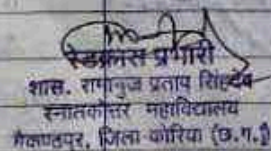 रेडक्रास प्रभारी
शास. रामानुज प्रताप सिंहदेव
स्नातकोत्तर महाविद्यालय
बैकुण्ठपुर, जिला कोरिया (छ.ग.)